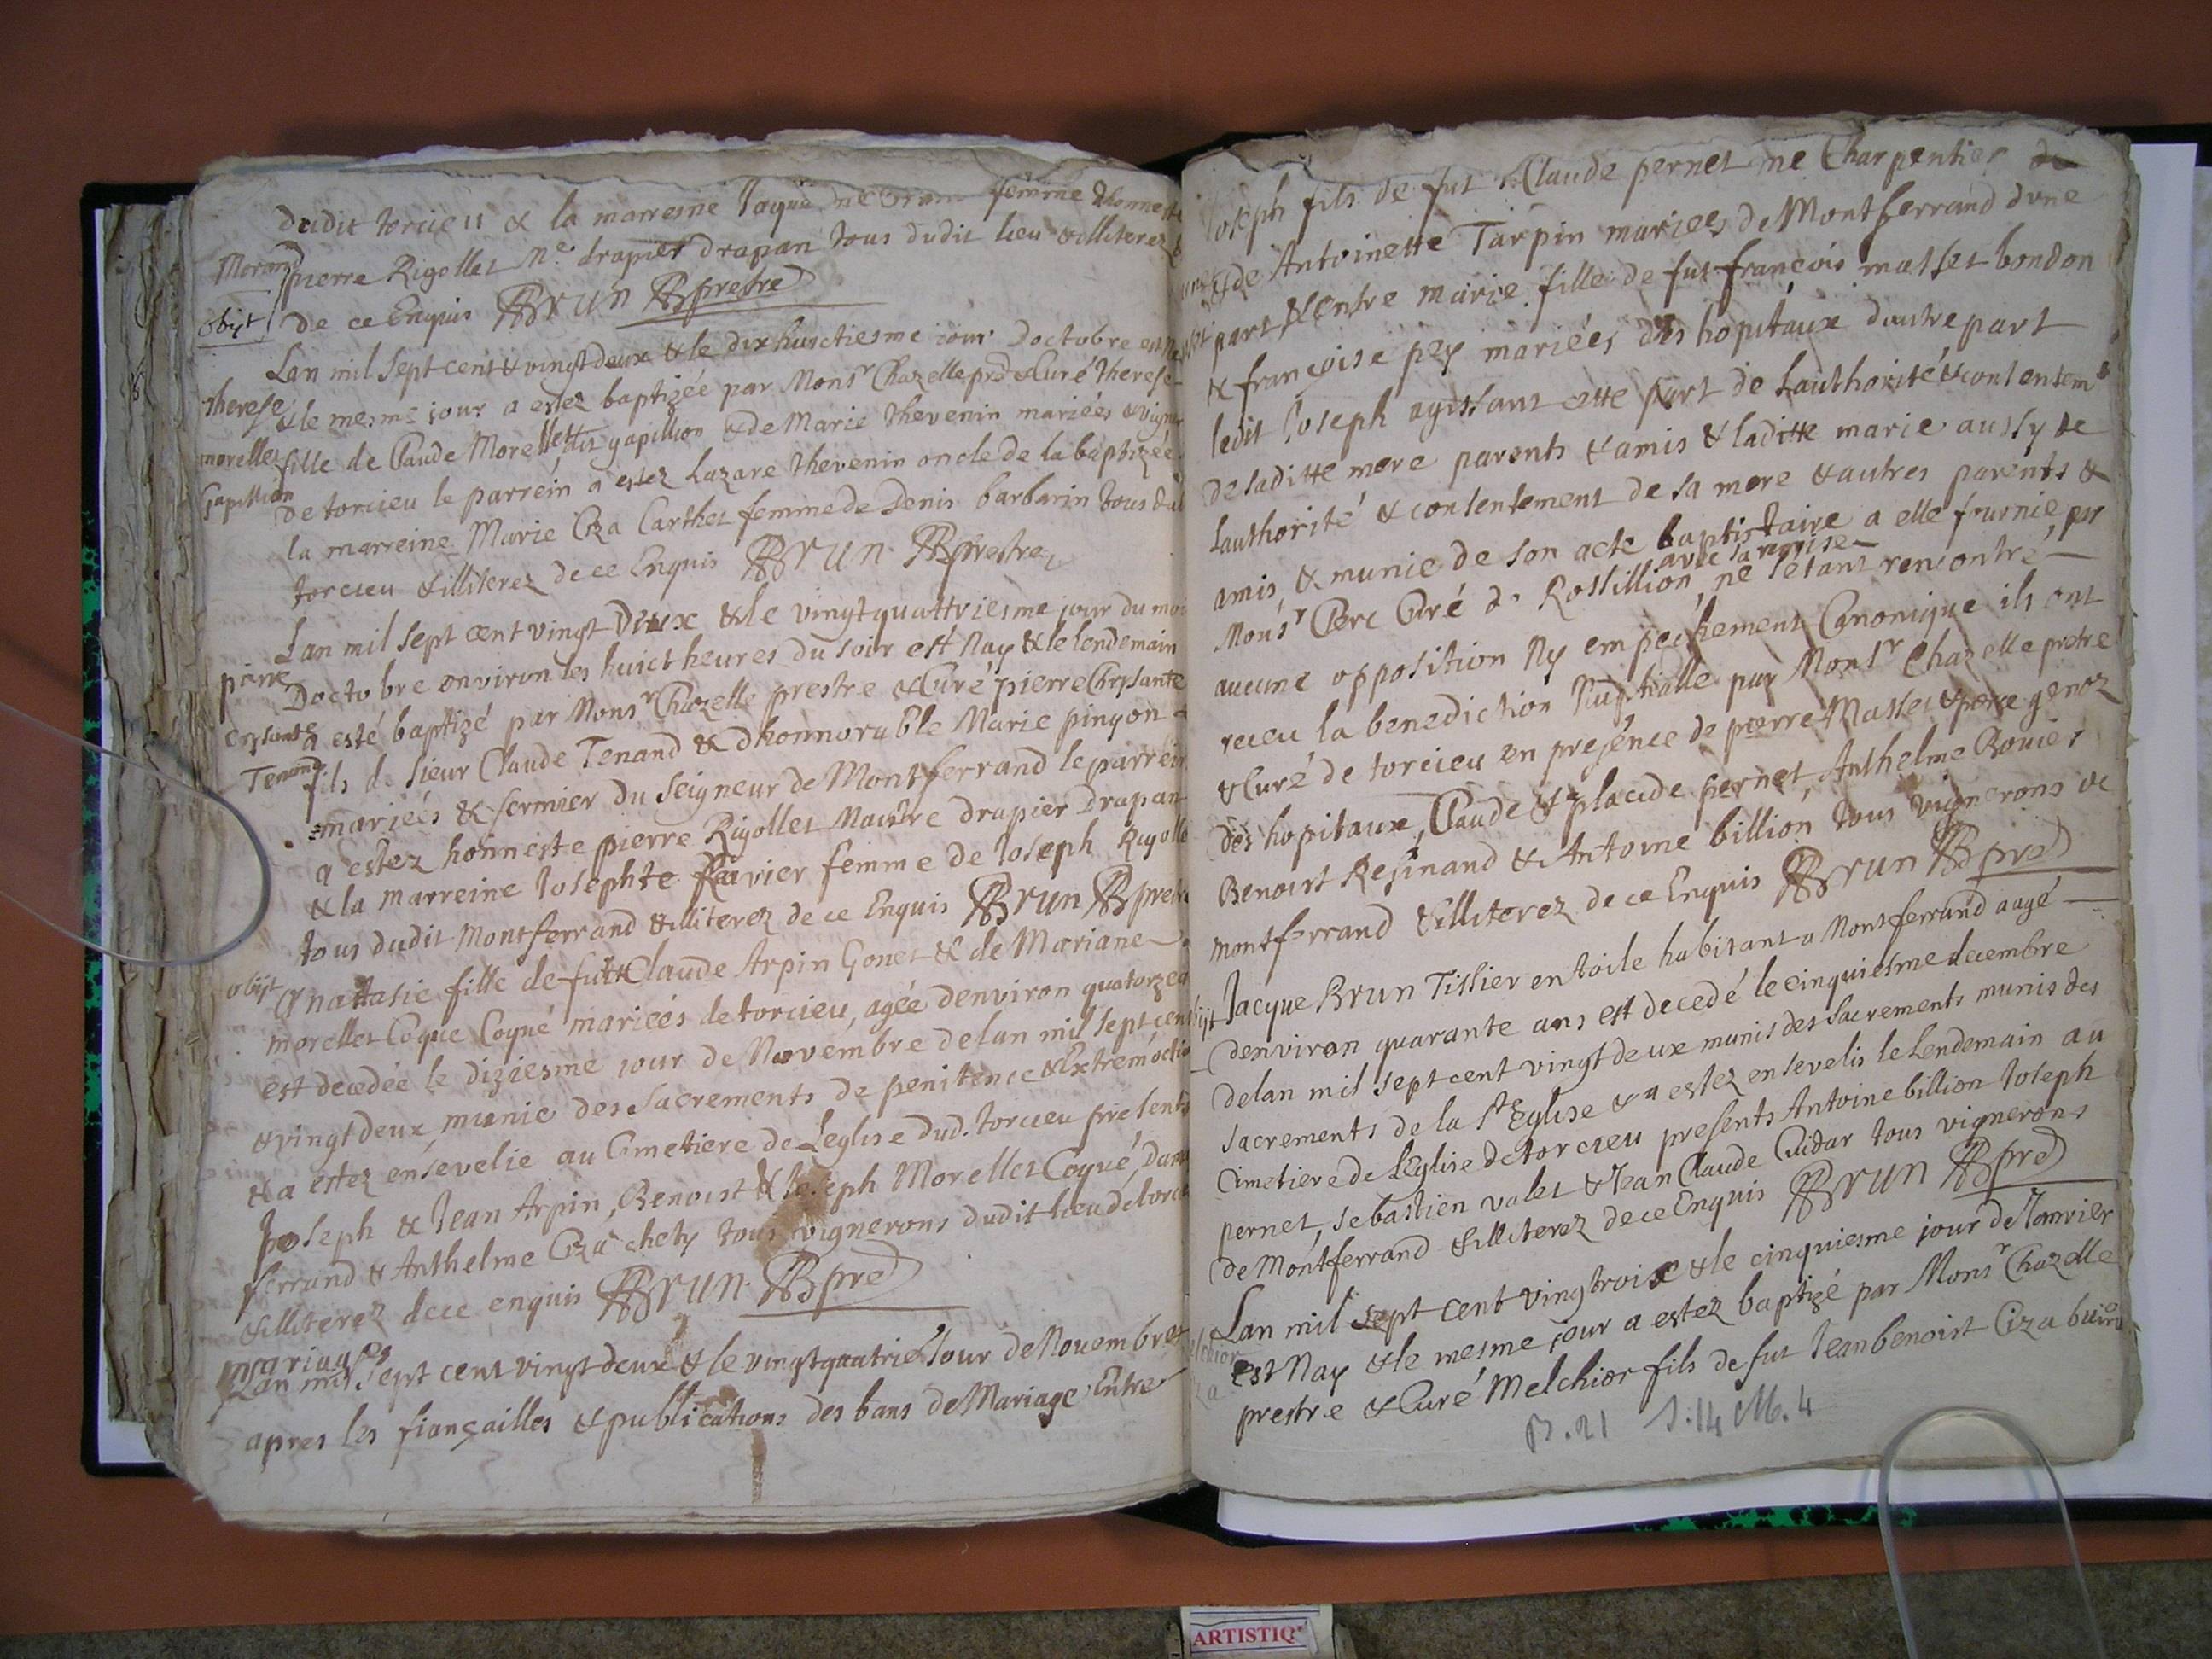 dudit torcieu & la marreine Jaque femme dhonneste
Morand pierre Rigollet Me drapier drapan tous dudit lieu &illiterez
obijt de ce Enquis Brun prestre
Lan mil sept cent & vingt deux & le dix huictiesme iour Doctobre est
& le mesme iour a estez baptizée par Monsr Chazelle prd &Curé Therese
Therese morellet Gapillion
fille de Claude Morellet dit gapillion &de Marie Thevenin mariées &vigne
de torcieu le parrein a estez Lazare Thevenin oncle de la baptizée
la marreine Marie Ciza Carthet femme de Denis barbarin tous dud
torcieu &illiterez de ce Enquis Brun prestre
Lan mil sept cent vingt Deux & le vingt quattriesme jour du moi
Doctobre environ les huict heures du soir est Nay & le lendemain
pierre Crysante Tenand
a esté baptizé par Monsr Chazelle prestre &Curé pierre Chrysante
fils de sieur Claude Tenand & dhonnorable Marie pinçon
mariées & fermier du Seigneur de Montferrand le parrein
a estez honneste pierre Rigollet Maistre drapier Drapan
& la marreine Josephte Ravier femme de Joseph Rigolle
tous dudit Montferrand &illiterez de ce Enquis Brun pretre
obijt Anattasie fille de fut Claude Arpin Gonet & de Mariane
morellet Coque Coqué mariées de torcieu, agée denviron quatorze
est decedée le diziesme jour de Novembre de lan mil sept cent
&vingt deux munie des Sacrements de penitence &Extremoctio
& a estez ensevelie au Cimetiere de Leglise dud. torcieu presents
Joseph & Jean Arpin, Benoist & Joseph Morellet Coqué, Dam
ferrand & Anthelme Ciza chety tous vignerons dudit lieu de torcieu
&illiterez de ce enquis Brun pre
mariages
Lan mil sept cent vingt deux & le vingt quatrie Jour de Novembre
apres les fiançailles & publications des bans de Mariage Entre
Joseph fils de fut Claude pernet me Charpentier de
&de Antoinette Tarpin mariées de Montferrand dune
part, &Entre marie fille de fut françois masset bondon
& françoise pey mariées des hopitaux dautre part
ledit Joseph agissant cette part de Lauthorité &contentemt
de saditte mere parents & amis & laditte marie aussy de
Lauthorité & contentement de sa mere & autres parents &
amis & munie de son acte baptistaire a elle fournie pr
Monsr Clerc Curé de Rossillion avec sa remise ne setant rencontré
aucune opposition Ny empechement Canonique ils ont
receu la benediction Nuptialle par Monsr Chazelle pretre
&Curé de torcieu en presence de pierre Masset & pierre genoz
des hopitaux, Claude & placide pernet, Anthelme Bovier
Benoist Resinand & Antoine billion tous vignerons de
montferrand &illiterez de ce Enquis Brun pre
Jacque Brun Tissier en toile habitant a Montferrand aagé
denviron quarante ans est decedé le cinquiesme decembre
de lan mil sept cent vingt deux munis des Sacrements munis des
sacrements de la Ste Eglise & a estez ensevelis le Lendemain au
Cimetiere de LEglise de torcieu presents Antoine billion Joseph
pernet, sebastien valet & Jean Claude Cuidar tous vignerons
de Montferrand &illiterez de ce Enquis Brun pre
Lan mil sept cent vingtroix & le cinquiesme jour de Janvier
est Nay & le mesme jour a estez baptizé par Monsr Chazelle
prestre &Curé Melchior fils de fut Jean benoist Ciza
B. 21 S. 14 M. 4
ARTISTIQ